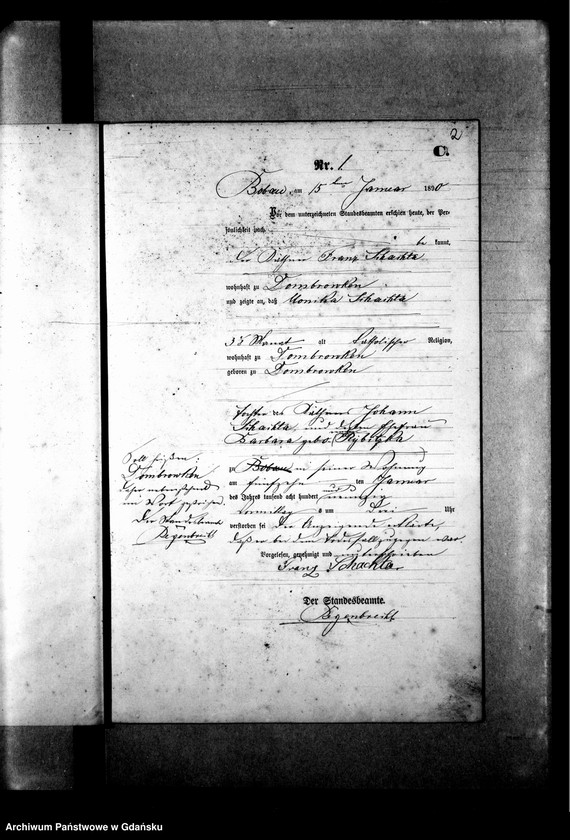 2
C.
Nr. 1
Bobau, am 15ten Januar 1890
Vor dem unterzeichneten Standesbeamten erschien heute, der Per-
sönlichkeit nach
be kannt,
der Käthner Franz Schachta
wohnhaft zu Dombrowken
und zeigte an, daß Monika Schachta
3 Monat alt katholischer Religion,
wohnhaft zu Dombrowken
geboren zu Dombrowken
Tochter des Käthners Johann
Schachta und dessen Ehefrau
Barbara gebo. Rybitzka
zu Bobau in seiner Wohnung
am fünfzehn ten Januar
des Jahres tausend acht hundert und neunzig
Vormittag s um drei Uhr
verstorben sei der Anzeigende erklärte,
daß er bei dem Todesfall zugegen war.
Vorgelesen, genehmigt und unterschrieben
Franz Schachta
Der Standesbeamte.
Pegenbreist
Soll heißen:
Dombrowken
ein Wort gestrichen.
Der Standesbeamte
Pegenbreist
Archiwum Państwowe w Gdańsku